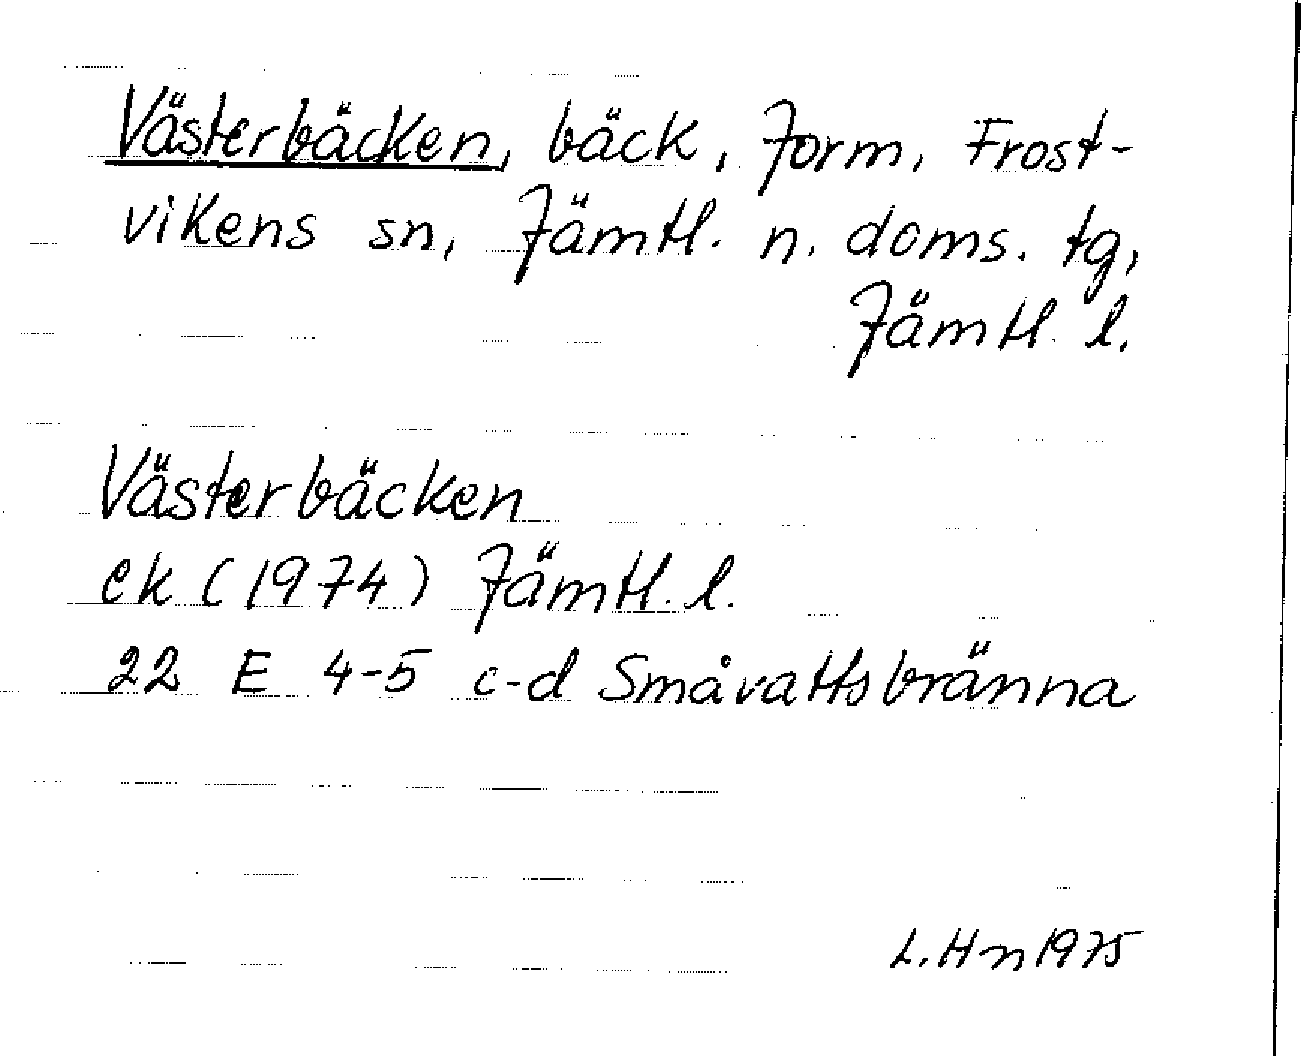 Västerbäcken, bäck, Jorm, Frost-
vikens sn, Jämtl. n. doms. tg,
Jämtl. l.
Västerbäcken
ek (1974) Jämtl. l.
22 E 4-5 c-d Småvattsbränna
L. Hn 1975